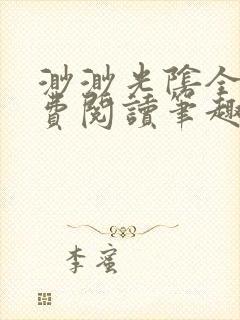 渺渺光陰全
費閱讀筆趣
李蜜